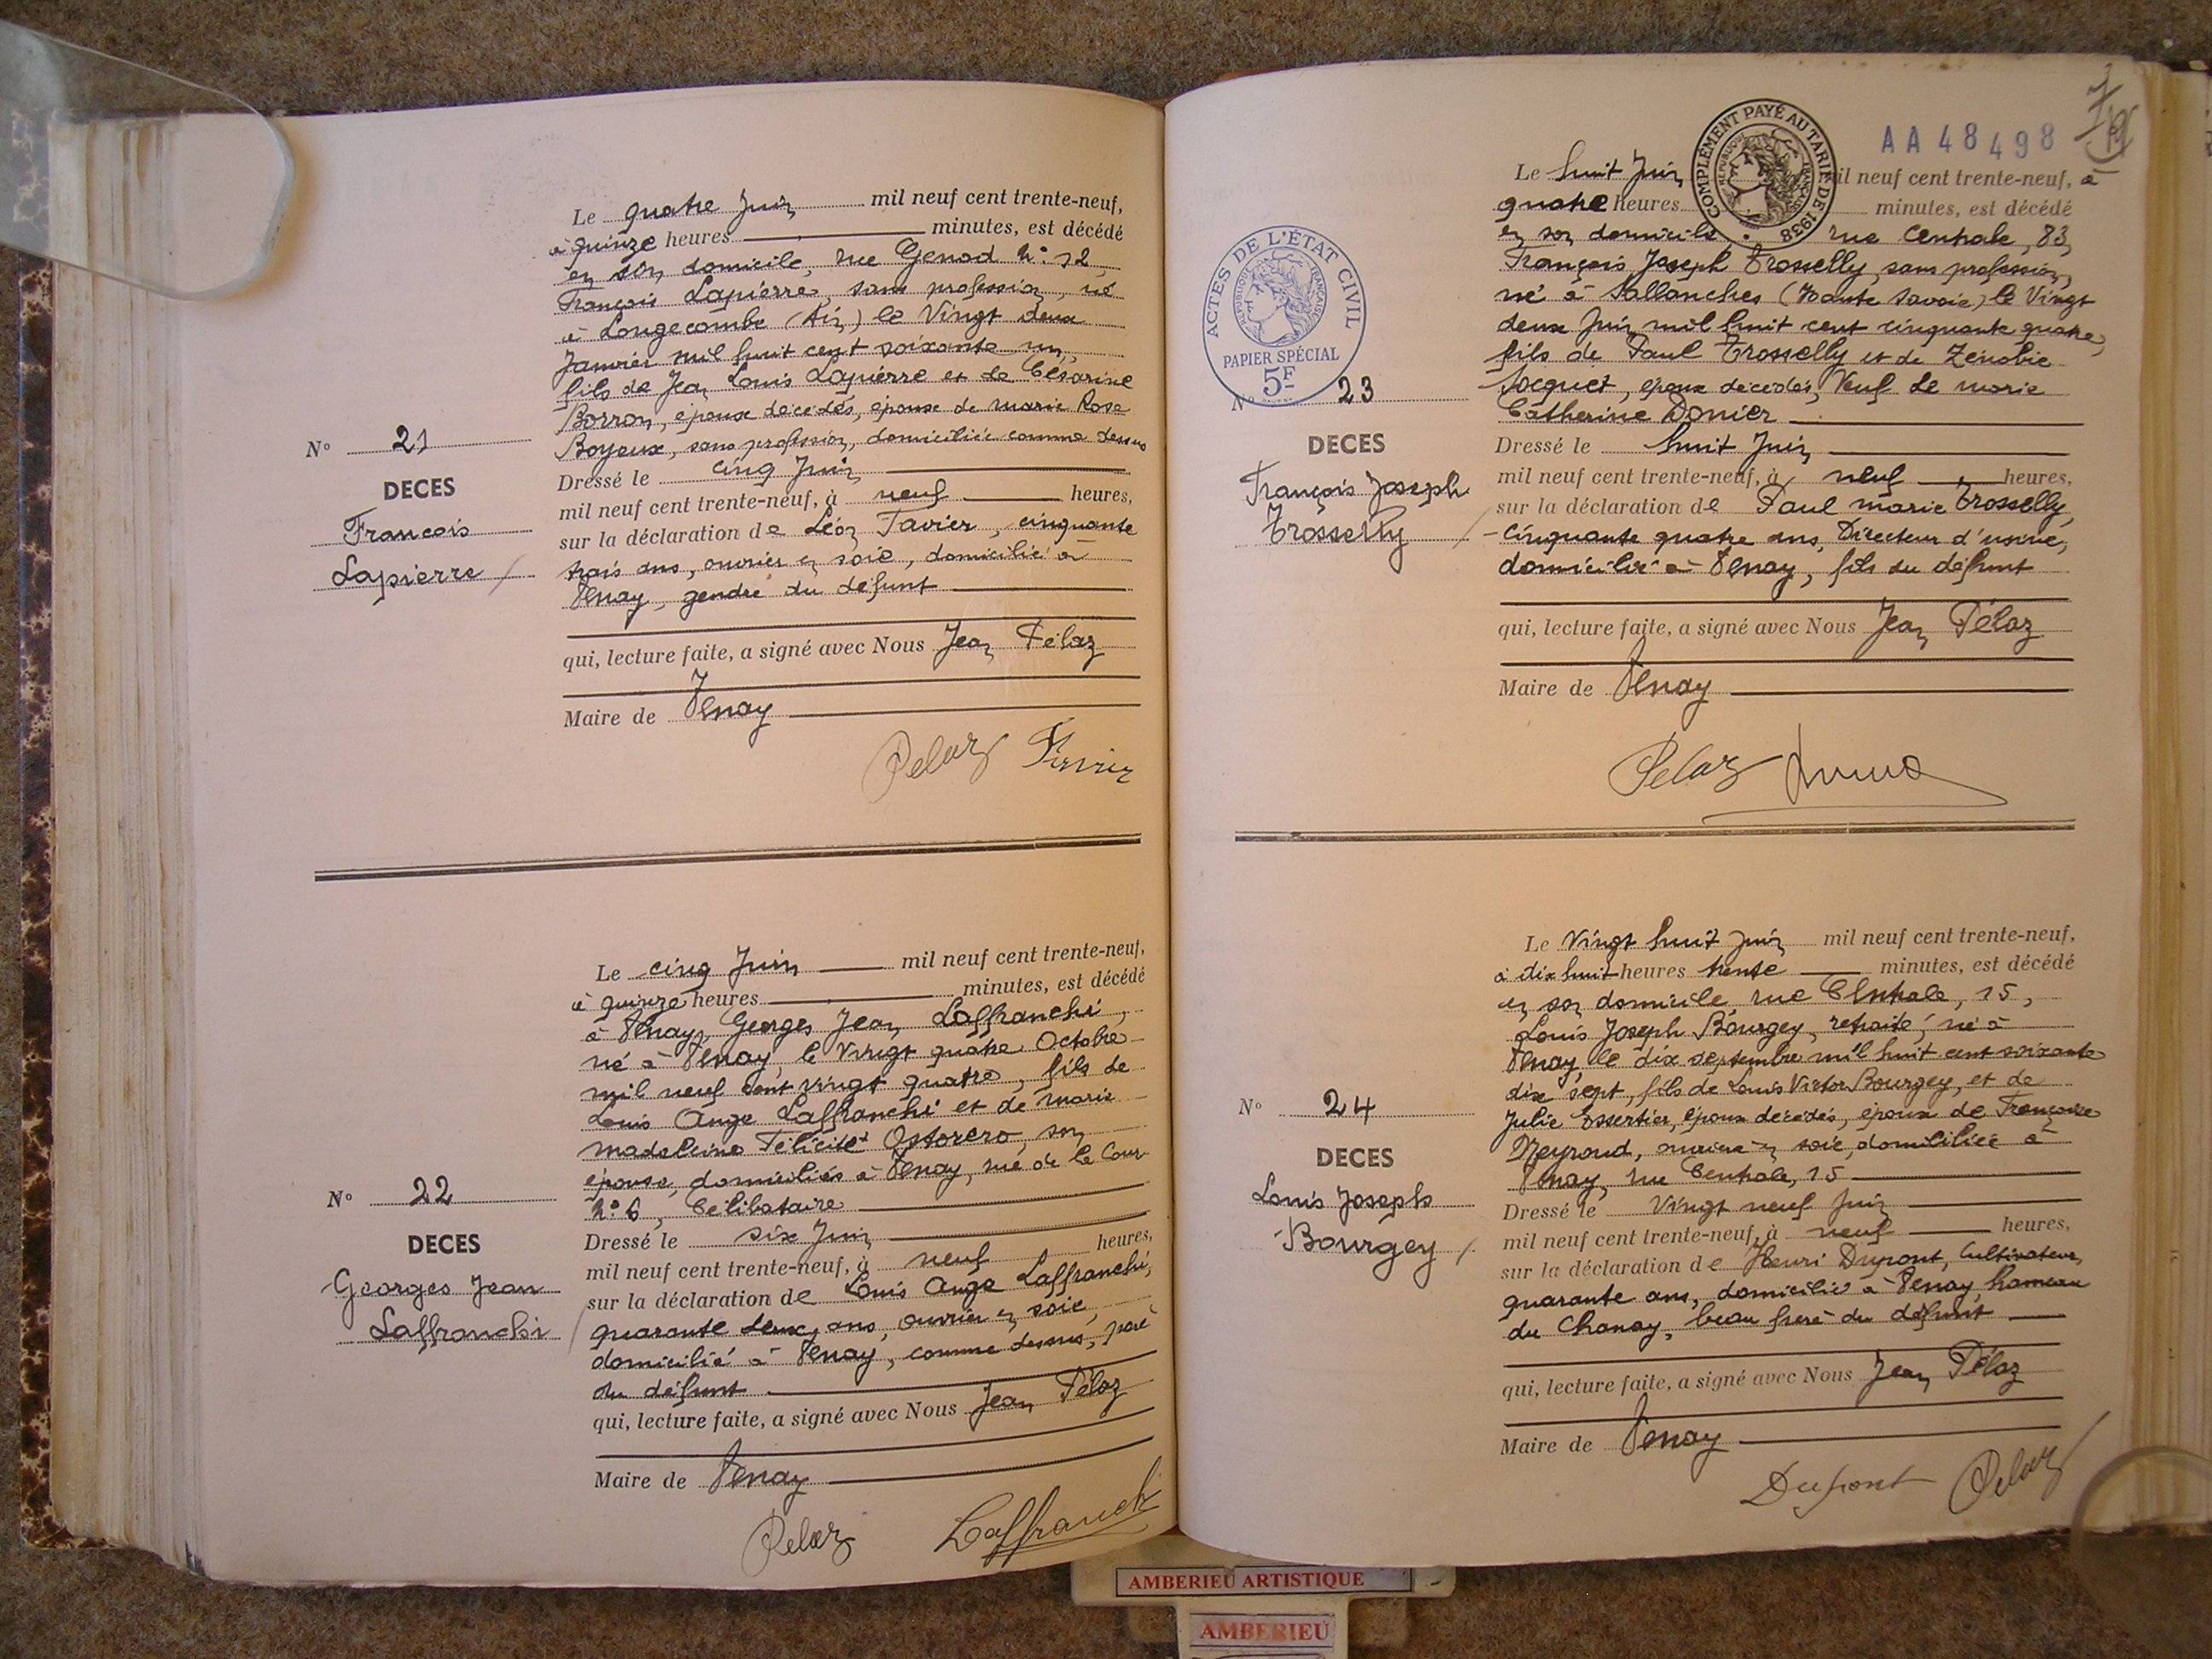 Le quatre Juin mil neuf cent trente-neuf,
à quinze heures minutes, est décédé
en son domicile, rue Genod N° 12,
François Lapierre, sans profession, né
à Longecombe (Ain) le Vingt deux
Janvier mil huit cent soixante un,
fils de Jean Louis Lapierre et de Césarine
Borron, époux décédés, époux de Marie Rose
Boyeux, sans profession, domiciliée comme dessus
N° 21
DECES
François
Lapierre
Dressé le cinq Juin
mil neuf cent trente-neuf, à neuf heures,
sur la déclaration de Léon Tavier, cinquante
trois ans, ouvrier en soie, domicilié à
Tenay, gendre du défunt
qui, lecture faite, a signé avec Nous Jean Pélaz
Maire de Tenay
Pelaz
Le cinq Juin mil neuf cent trente-neuf,
à quinze heures minutes, est décédé
à Tenay, Georges Jean Laffranchi,
né à Tenay, le Vingt quatre Octobre
mil neuf cent vingt quatre, fils de
Louis Ange Laffranchi et de Marie
Madeleine Félicité Ostorero, son
épouse, domiciliés à Tenay, rue de la Cour
N° 6, Célibataire
N° 22
DECES
Georges Jean
Laffranchi
Dressé le six Juin
mil neuf cent trente-neuf, à neuf heures,
sur la déclaration de Louis Ange Laffranchi,
quarante deux ans, ouvrier en soie,
domicilié à Tenay, comme dessus, père
du défunt
qui, lecture faite, a signé avec Nous Jean Pélaz
Maire de Tenay
Pelaz Laffranchi
AA 48498
COMPLÉMENT PAYÉ AU TARIF DE 1938
RÉPUBLIQUE FRANÇAISE
Le huit Juin mil neuf cent trente-neuf, à
quatre heures minutes, est décédé
en son domicile, rue Centrale, 83,
François Joseph Trosselly, sans profession,
né à Sallanches (Haute Savoie) le Vingt
deux Juin mil huit cent cinquante quatre,
fils de Paul Trosselly et de Zénobie
Socquet, époux décédés, Veuf de Marie
Catherine Donier
ACTES DE L'ÉTAT CIVIL
RÉPUBLIQUE FRANÇAISE
PAPIER SPÉCIAL
5F
N° 23
DECES
François Joseph
Trosselly
Dressé le huit Juin
mil neuf cent trente-neuf, à neuf heures,
sur la déclaration de Paul Marie Trosselly,
cinquante quatre ans, Directeur d'usine,
domicilié à Tenay, fils du défunt
qui, lecture faite, a signé avec Nous Jean Pélaz
Maire de Tenay
Pelaz
Le Vingt huit Juin mil neuf cent trente-neuf,
à dix huit heures trente minutes, est décédé
en son domicile rue Centrale, 15,
Louis Joseph Bourgey, retraité, né à
Tenay, le dix septembre mil huit cent soixante
dix sept, fils de Louis Victor Bourgey, et de
Julie Essertier, époux décédés, époux de Françoise
Meyroud, ouvrière en soie, domiciliée à
Tenay, rue Centrale, 15
N° 24
DECES
Louis Joseph
Bourgey
Dressé le Vingt neuf Juin
mil neuf cent trente-neuf, à neuf heures,
sur la déclaration de Henri Dupont, Cultivateur,
quarante ans, domicilié à Tenay, hameau
du Chanay, beau frère du défunt
qui, lecture faite, a signé avec Nous Jean Pélaz
Maire de Tenay
Dupont Pelaz
AMBERIEU ARTISTIQUE
AMBERIEU